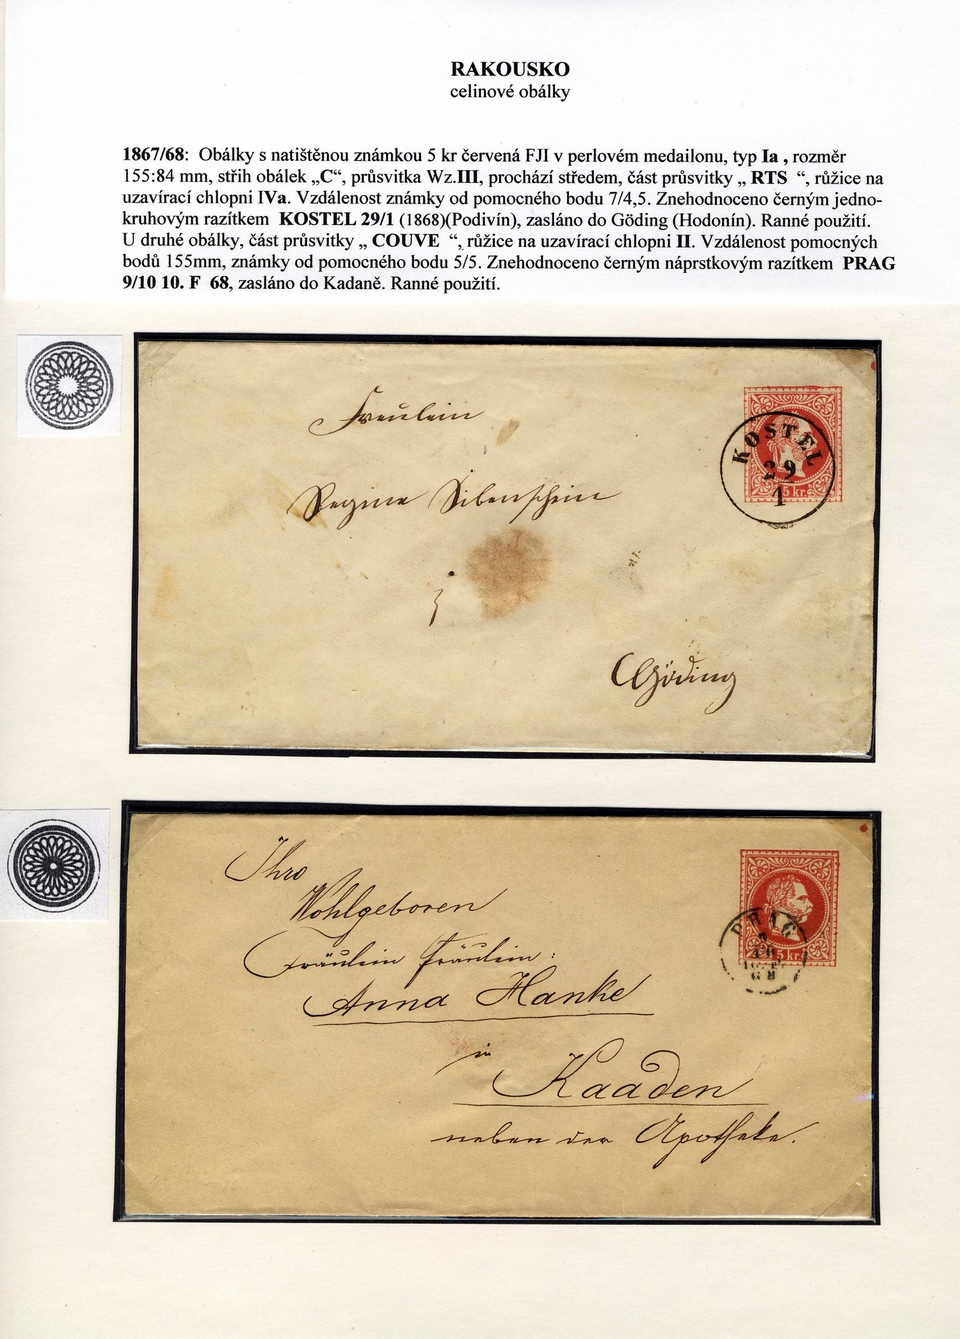 RAKOUSKO
celinové obálky
1867/68: Obálky s natištěnou známkou 5 kr červená FJI v perlovém medailonu, typ Ia , rozměr
155:84 mm, střih obálek „C“, průsvitka Wz.III, prochází středem, část průsvitky „ RTS “, růžice na
uzavírací chlopni IVa. Vzdálenost známky od pomocného bodu 7/4,5. Znehodnoceno černým jedno-
kruhovým razítkem KOSTEL 29/1 (1868)(Podivín), zasláno do Göding (Hodonín). Ranné použití.
U druhé obálky, část průsvitky „ COUVE “, růžice na uzavírací chlopni II. Vzdálenost pomocných
bodů 155mm, známky od pomocného bodu 5/5. Znehodnoceno černým náprstkovým razítkem PRAG
9/10 10. F 68, zasláno do Kadaně. Ranné použití.
Freulein
KOSTEL
29
1
5 kr.
Regine
Göding
Ihro
Wohlgeboren
Fräulein Fräulein:
Anna Hanke
in
Kaaden
neben der Apotheke.
PRAG
68
5 kr.